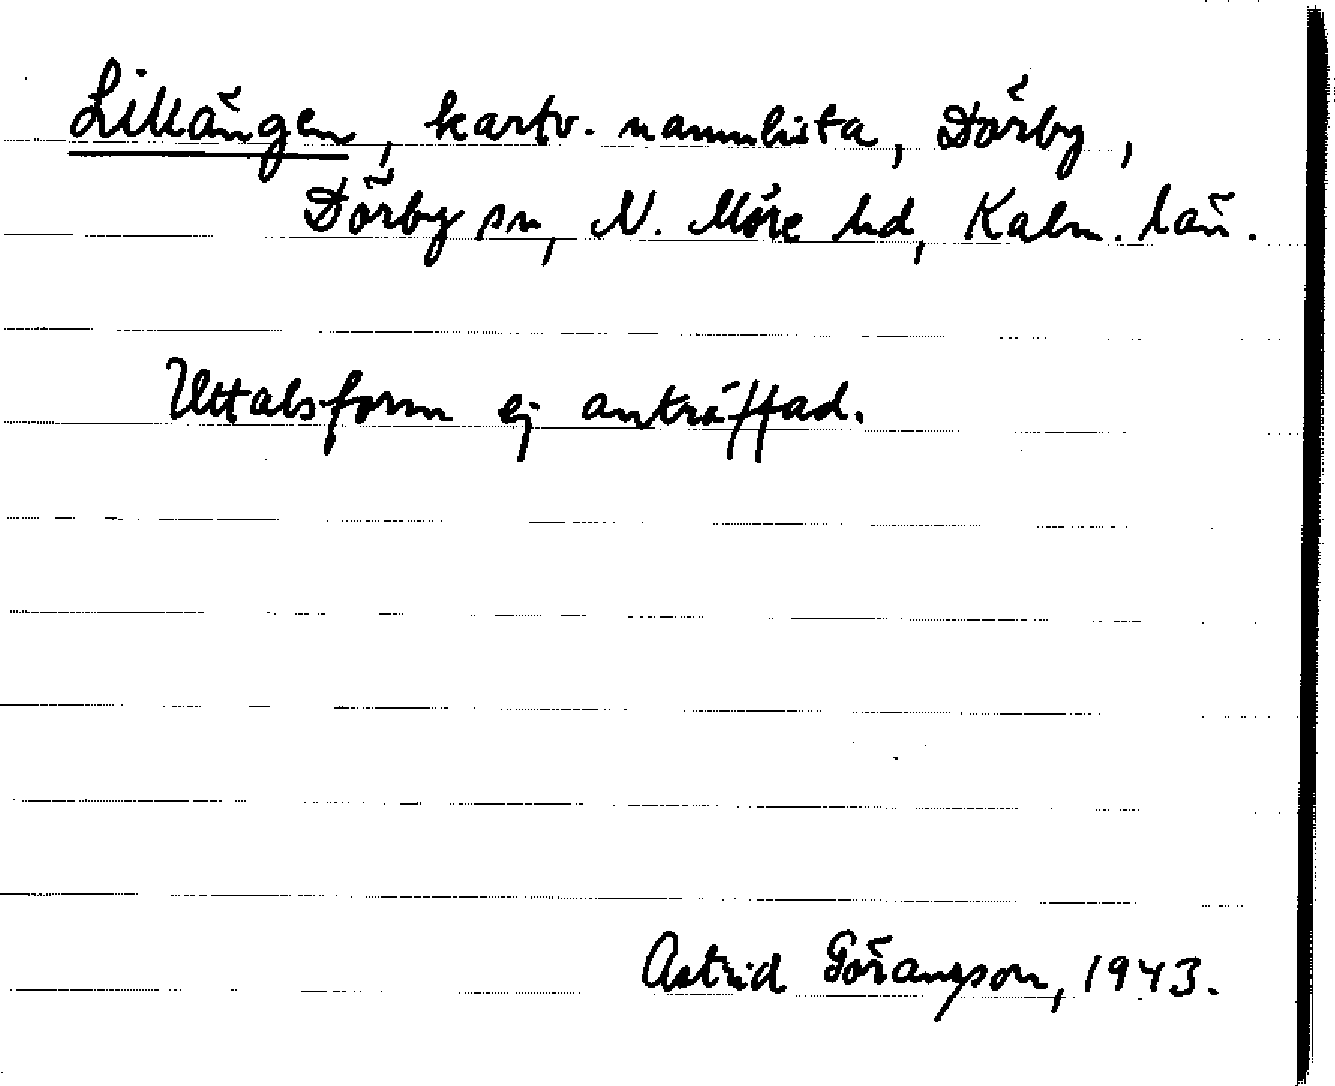 Lillängen, kartv. namnlista, Dörby,
Dörby sn, N. Möre hd, Kalm. län.
Uttalsform ej anträffad.
Astrid Göransson, 1943.